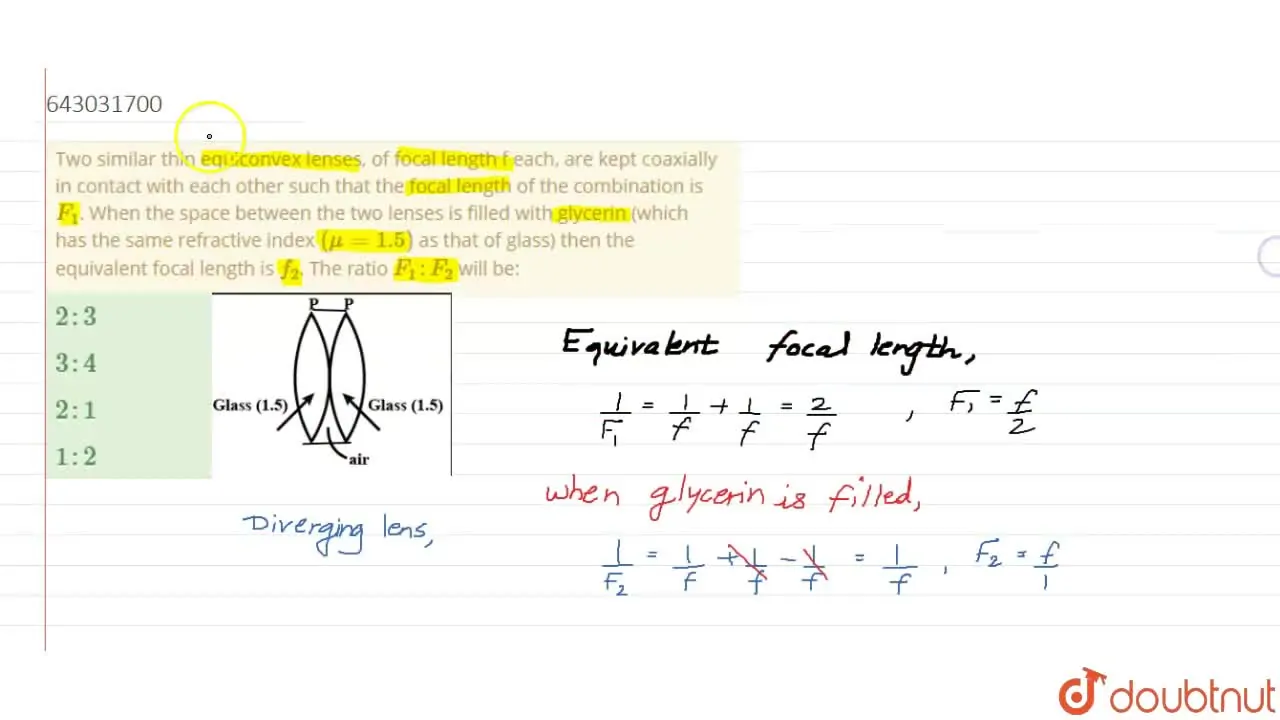 643031700
Two similar thin equiconvex lenses, of focal length f each, are kept coaxially
in contact with each other such that the focal length of the combination is
F₁. When the space between the two lenses is filled with glycerin (which
has the same refractive index (μ = 1.5) as that of glass) then the
equivalent focal length is f₂. The ratio F₁ : F₂ will be:
2 : 3
3 : 4
2 : 1
1 : 2
P P
Glass (1.5) Glass (1.5)
air
Equivalent focal length,
1/F₁ = 1/f + 1/f = 2/f , F₁ = f/2
when glycerin is filled,
Diverging lens,
1/F₂ = 1/f + 1/f - 1/f = 1/f , F₂ = f/1
doubtnut